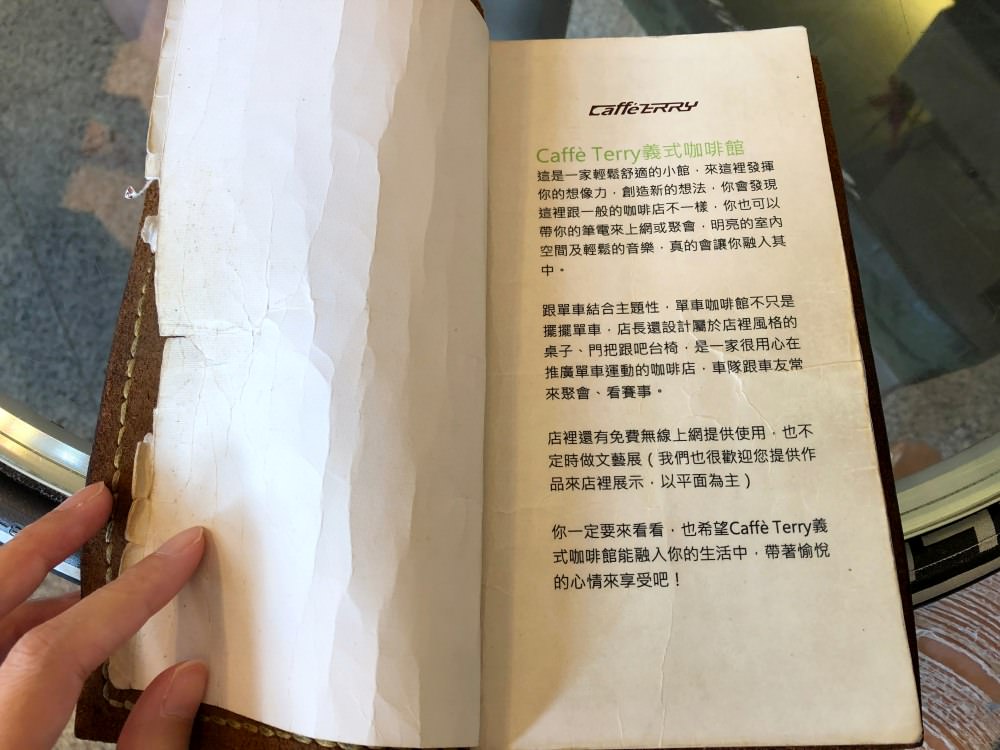 CaffèTERRY
Caffè Terry義式咖啡館
這是一家輕鬆舒適的小館，來這裡發揮
你的想像力，創造新的想法，你會發現
這裡跟一般的咖啡店不一樣，你也可以
帶你的筆電來上網或聚會，明亮的室內
空間及輕鬆的音樂，真的會讓你融入其
中。
跟單車結合主題性，單車咖啡館不只是
擺擺單車，店長還設計屬於店裡風格的
桌子、門把跟吧台椅，是一家很用心在
推廣單車運動的咖啡店，車隊跟車友常
來聚會、看賽事。
店裡還有免費無線上網提供使用，也不
定時做文藝展（我們也很歡迎您提供作
品來店裡展示，以平面為主）
你一定要來看看，也希望Caffè Terry義
式咖啡館能融入你的生活中，帶著愉悅
的心情來享受吧！